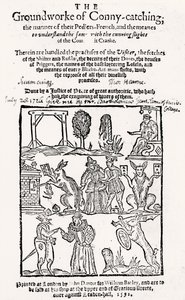 THE
Groundworke of Conny-catching,
the manner of their Pedlers-French, and the meanes
to understand the same with the cunning slights
of the Counterfeit Cranke.
Therein are handled the practises of the Visiter, the fetches
of the Shifter and Rufflar, the deceits of their Doxes, the devises
of Priggers, the names of the base loytering Losels, and
the meanes of every Blacke-Art-mans shifts, with
the reproofe of all their divellish
practises.
Done by a Justice of Peace of great authoritie, who hath
had the examining of divers of them.
Printed at London by John Danter for William Barley, and are to
be sold at his shop at the upper end of Gratious streete,
over against Leaden-hall, 1592.